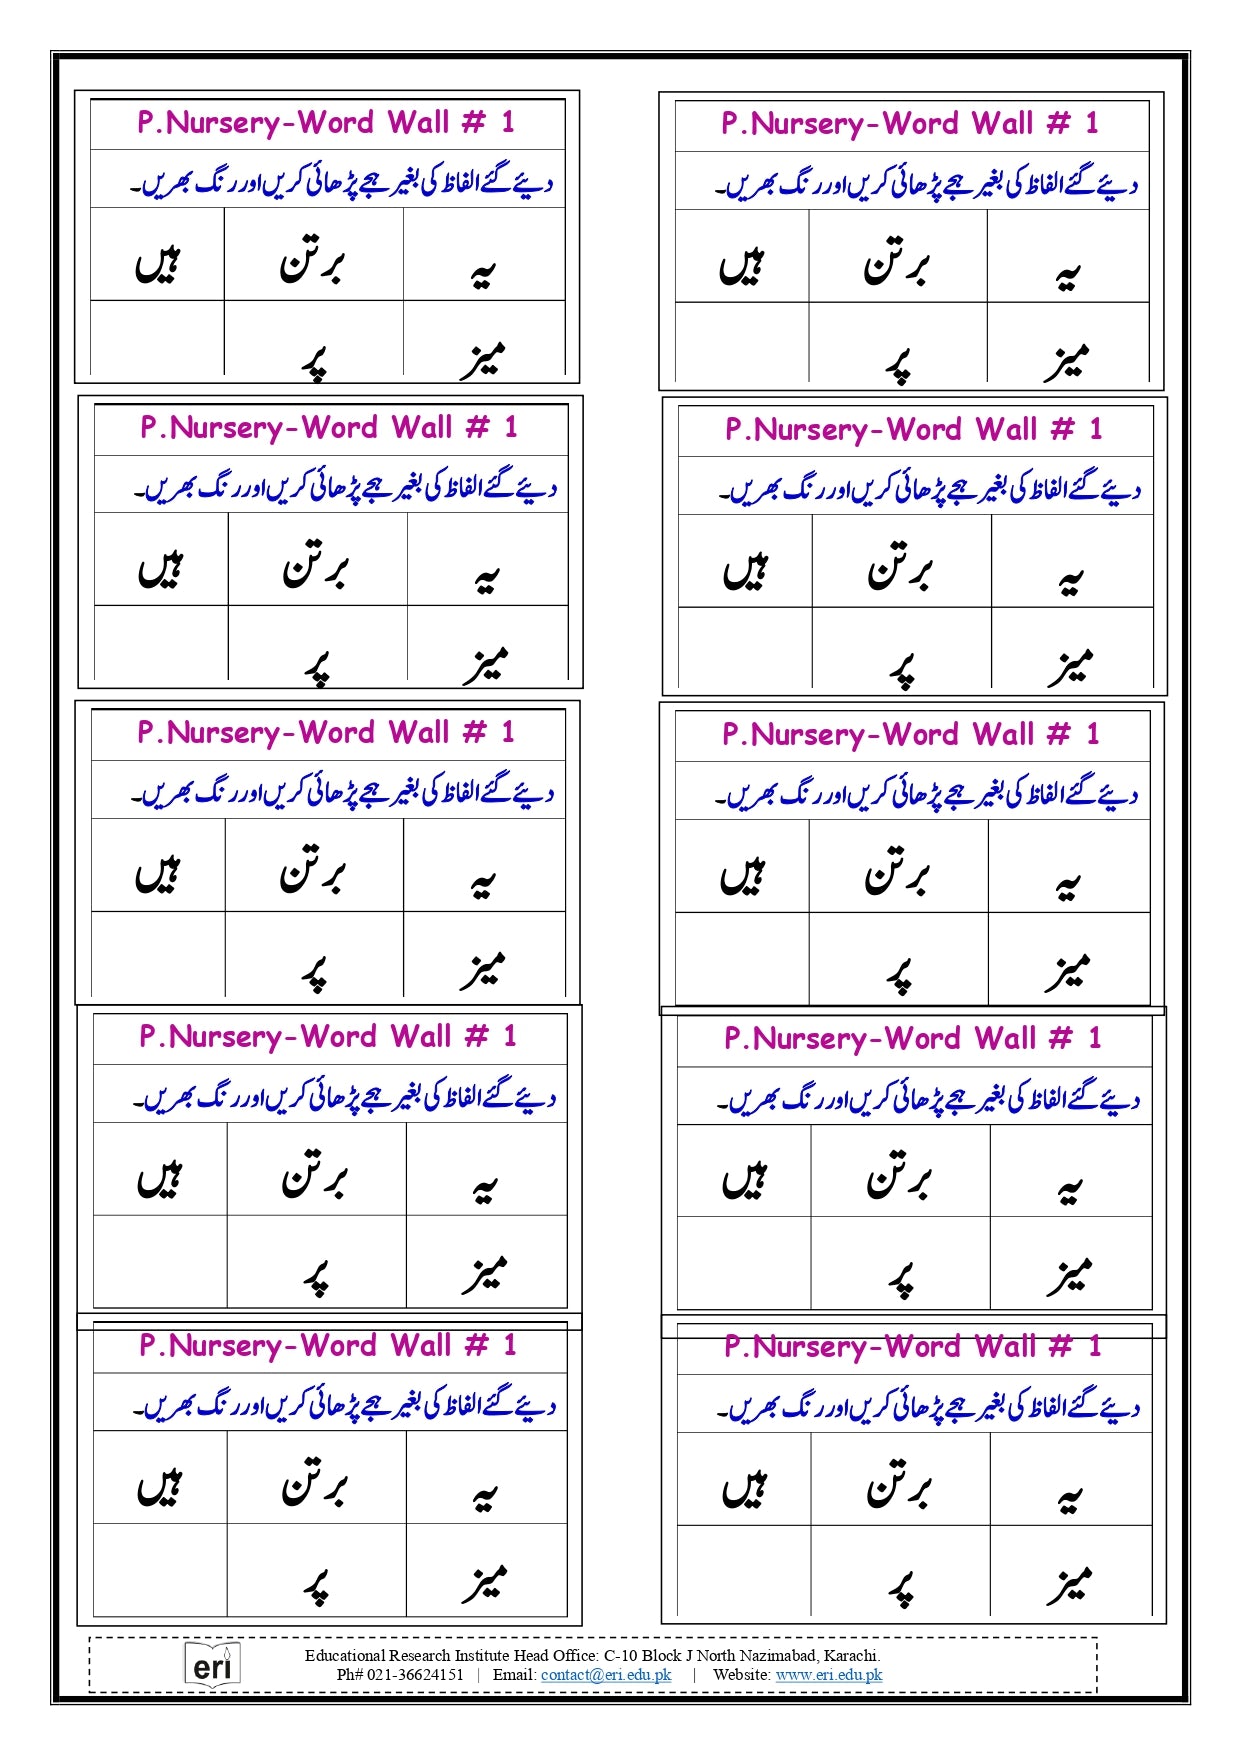 P.Nursery-Word Wall # 1
دیئے گئے الفاظ کی بغیر ہجے پڑھائی کریں اور رنگ بھریں۔
یہ برتن ہیں
میز پر
P.Nursery-Word Wall # 1
دیئے گئے الفاظ کی بغیر ہجے پڑھائی کریں اور رنگ بھریں۔
یہ برتن ہیں
میز پر
P.Nursery-Word Wall # 1
دیئے گئے الفاظ کی بغیر ہجے پڑھائی کریں اور رنگ بھریں۔
یہ برتن ہیں
میز پر
P.Nursery-Word Wall # 1
دیئے گئے الفاظ کی بغیر ہجے پڑھائی کریں اور رنگ بھریں۔
یہ برتن ہیں
میز پر
P.Nursery-Word Wall # 1
دیئے گئے الفاظ کی بغیر ہجے پڑھائی کریں اور رنگ بھریں۔
یہ برتن ہیں
میز پر
P.Nursery-Word Wall # 1
دیئے گئے الفاظ کی بغیر ہجے پڑھائی کریں اور رنگ بھریں۔
یہ برتن ہیں
میز پر
P.Nursery-Word Wall # 1
دیئے گئے الفاظ کی بغیر ہجے پڑھائی کریں اور رنگ بھریں۔
یہ برتن ہیں
میز پر
P.Nursery-Word Wall # 1
دیئے گئے الفاظ کی بغیر ہجے پڑھائی کریں اور رنگ بھریں۔
یہ برتن ہیں
میز پر
P.Nursery-Word Wall # 1
دیئے گئے الفاظ کی بغیر ہجے پڑھائی کریں اور رنگ بھریں۔
یہ برتن ہیں
میز پر
P.Nursery-Word Wall # 1
دیئے گئے الفاظ کی بغیر ہجے پڑھائی کریں اور رنگ بھریں۔
یہ برتن ہیں
میز پر
eri
Educational Research Institute Head Office: C-10 Block J North Nazimabad, Karachi.
Ph# 021-36624151 | Email: contact@eri.edu.pk | Website: www.eri.edu.pk